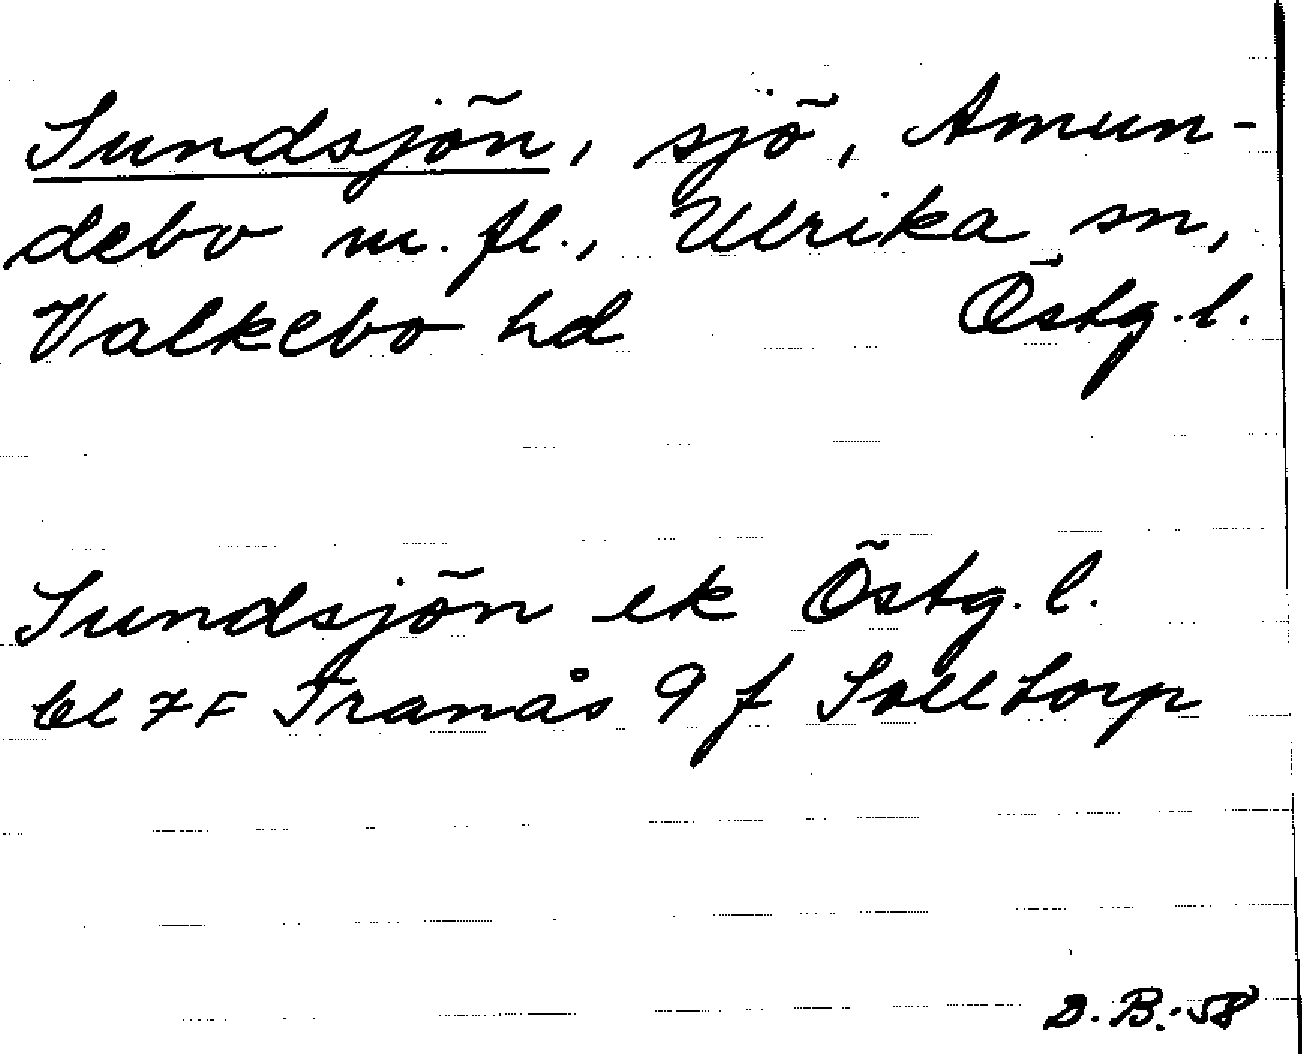 Sundsjön, sjö, Amun-
debo m. fl., Ulrika sn,
Valkebo hd Östg. l.
Sundsjön ek Östg. l.
bl 7F Tranås 9 f Solltorp
D. B. -58